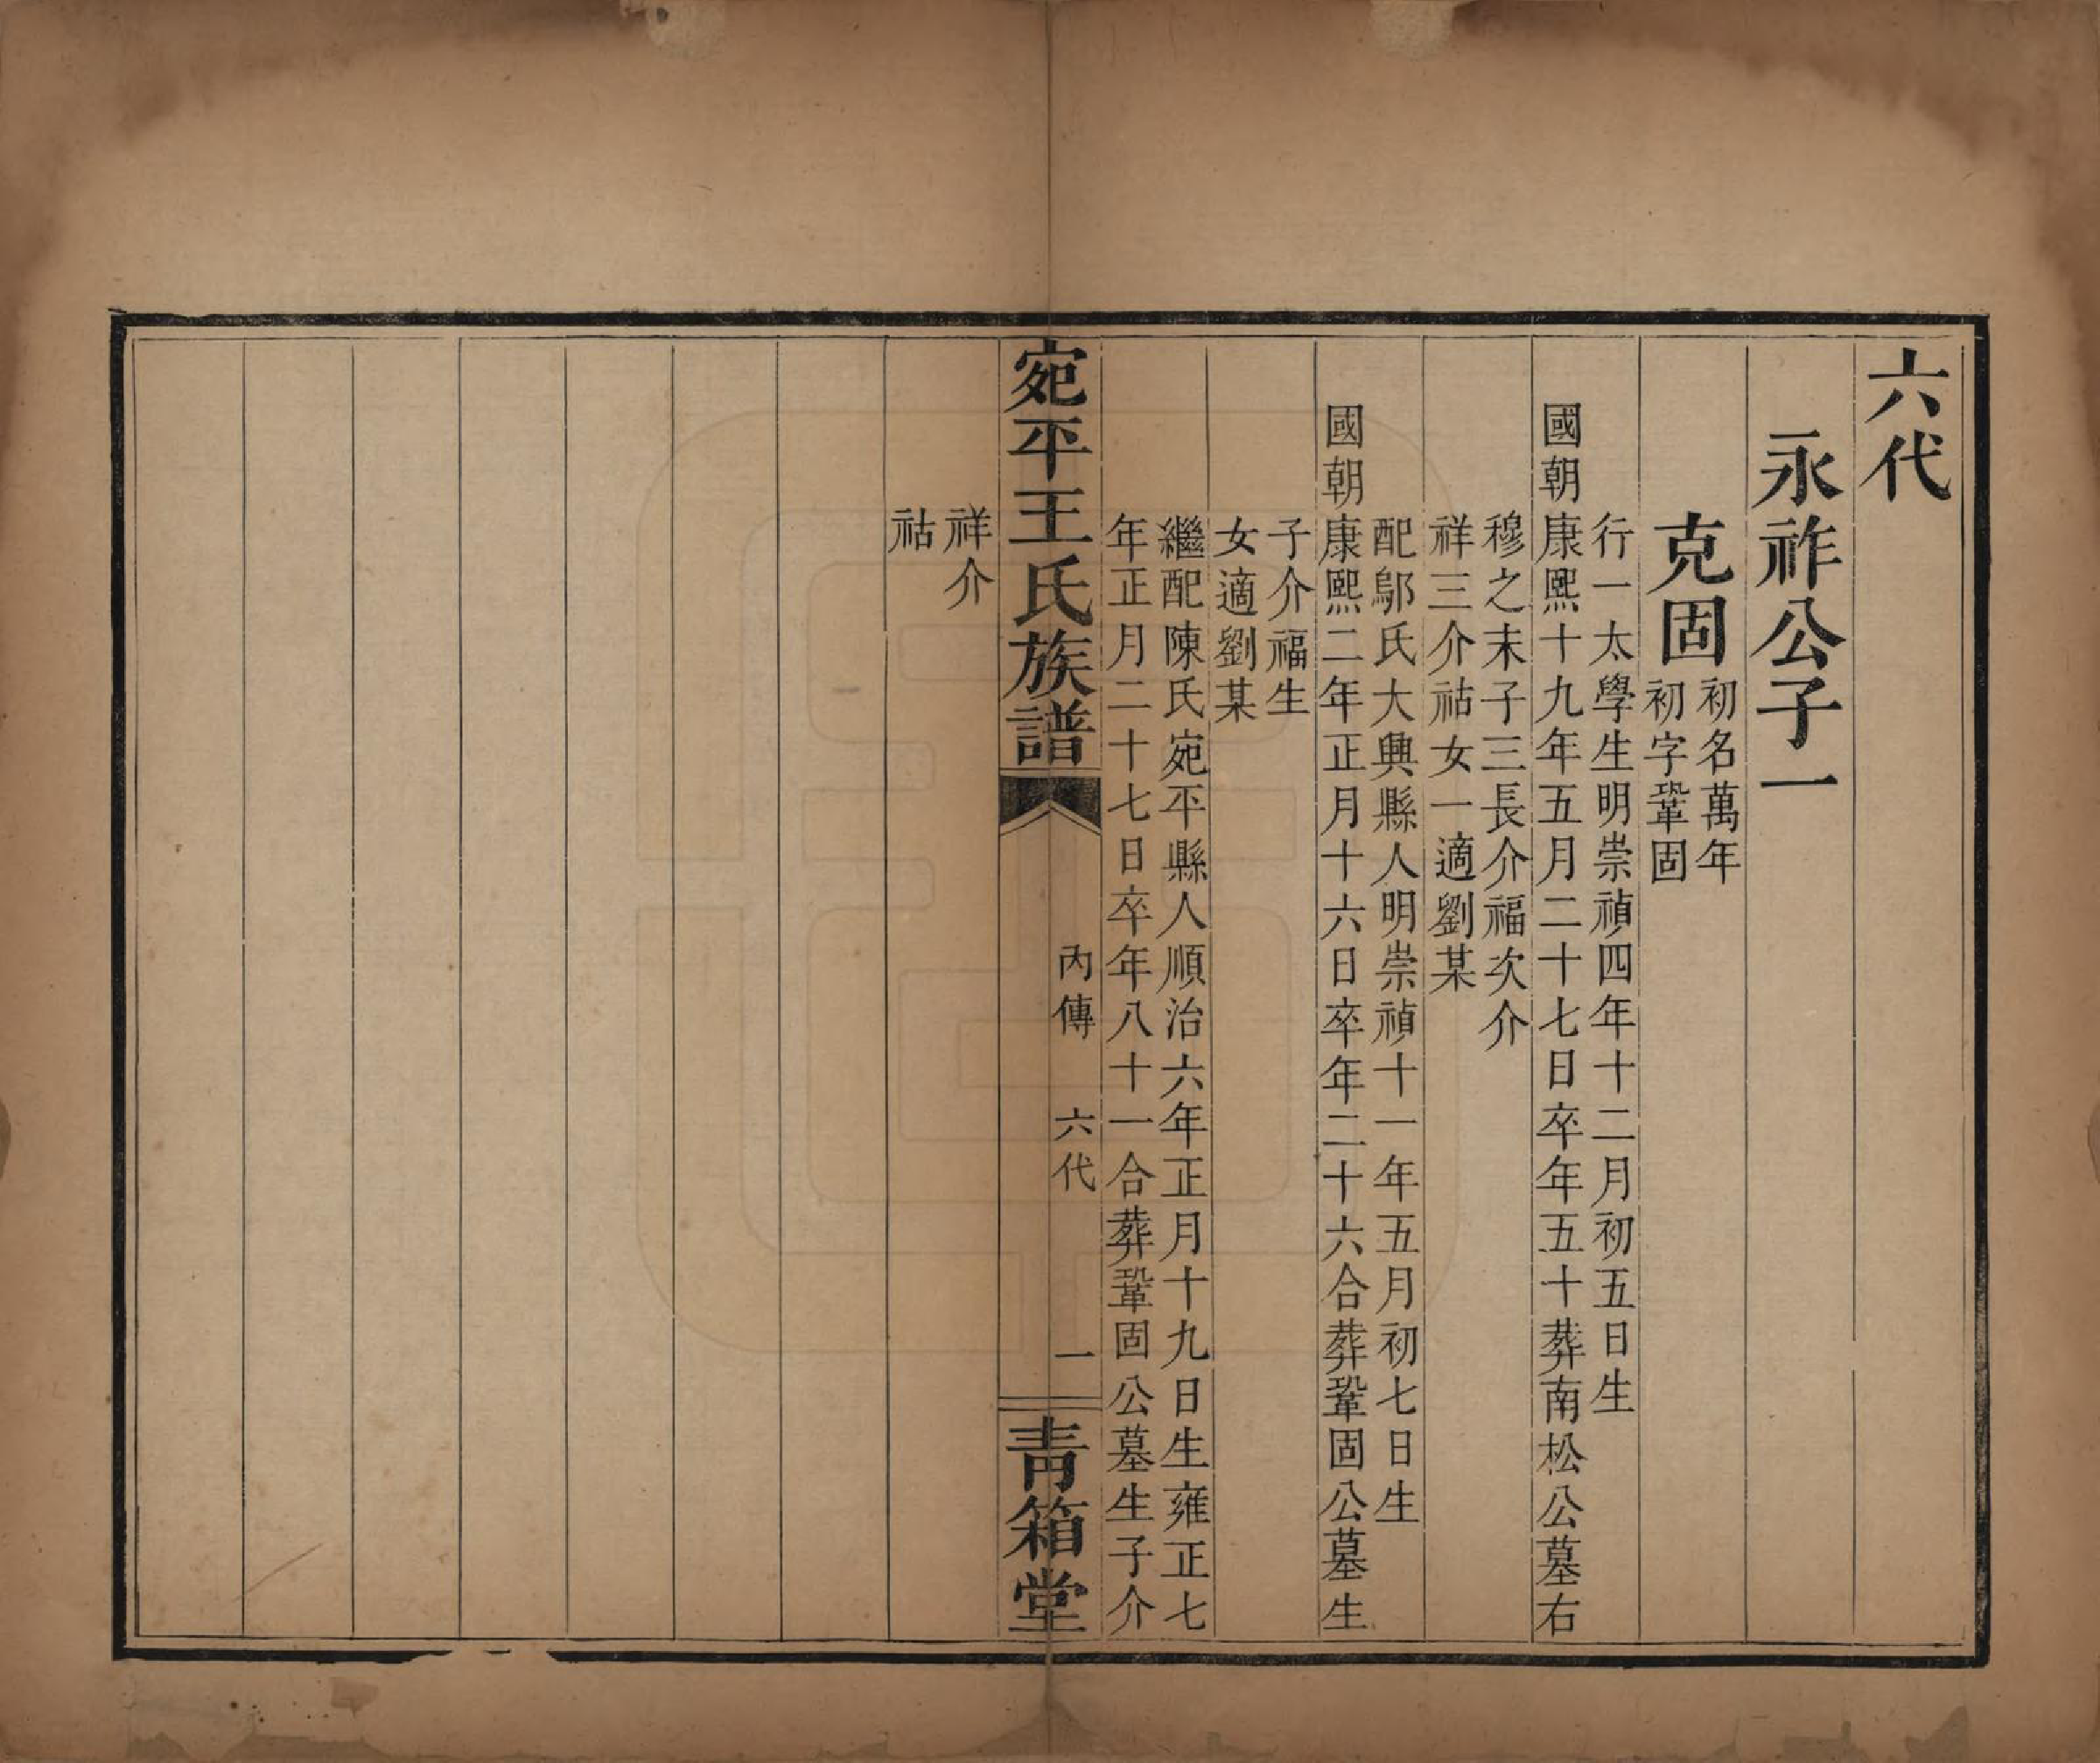 六代
永祚公子一
克固
初名萬年
初字鞏固
行一太學生明崇禎四年十二月初五日生
國朝康熙十九年五月二十七日卒年五十葬南松公墓右
穆之末子三長介福次介
祥三介祜女一適劉某
配鄔氏大興縣人明崇禎十一年五月初七日生
國朝康熙二年正月十六日卒年二十六合葬鞏固公墓生
子介福生
女適劉某
繼配陳氏宛平縣人順治六年正月十九日生雍正七
年正月二十七日卒年八十一合葬鞏固公墓生子介
宛平王氏族譜
內傳 六代 一
青箱堂
祥介
祜